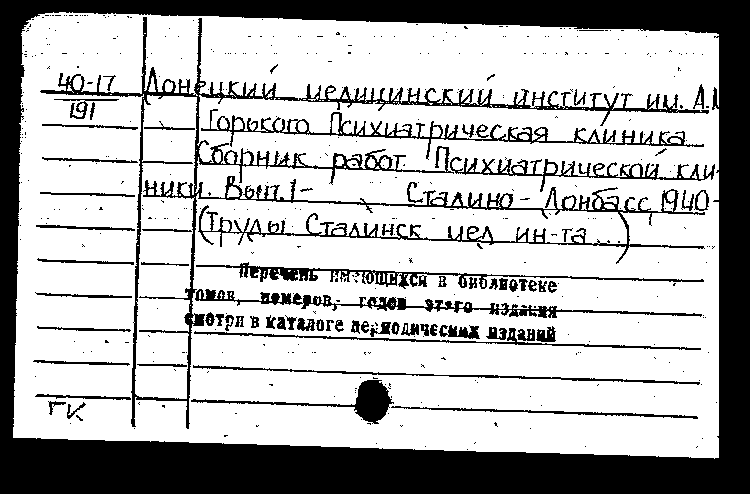 40-17 Донецкий медицинский институт им. А.М
191 Горького Психиатрическая клиника
Сборник работ Психиатрической кли-
ники. Вып. 1- Сталино - Донбасс, 1940-
(Труды Сталинск мед ин-та...)
Перечень имеющихся в библиотеке
томов, номеров, годов этого издания
смотри в каталоге периодических изданий
ГК